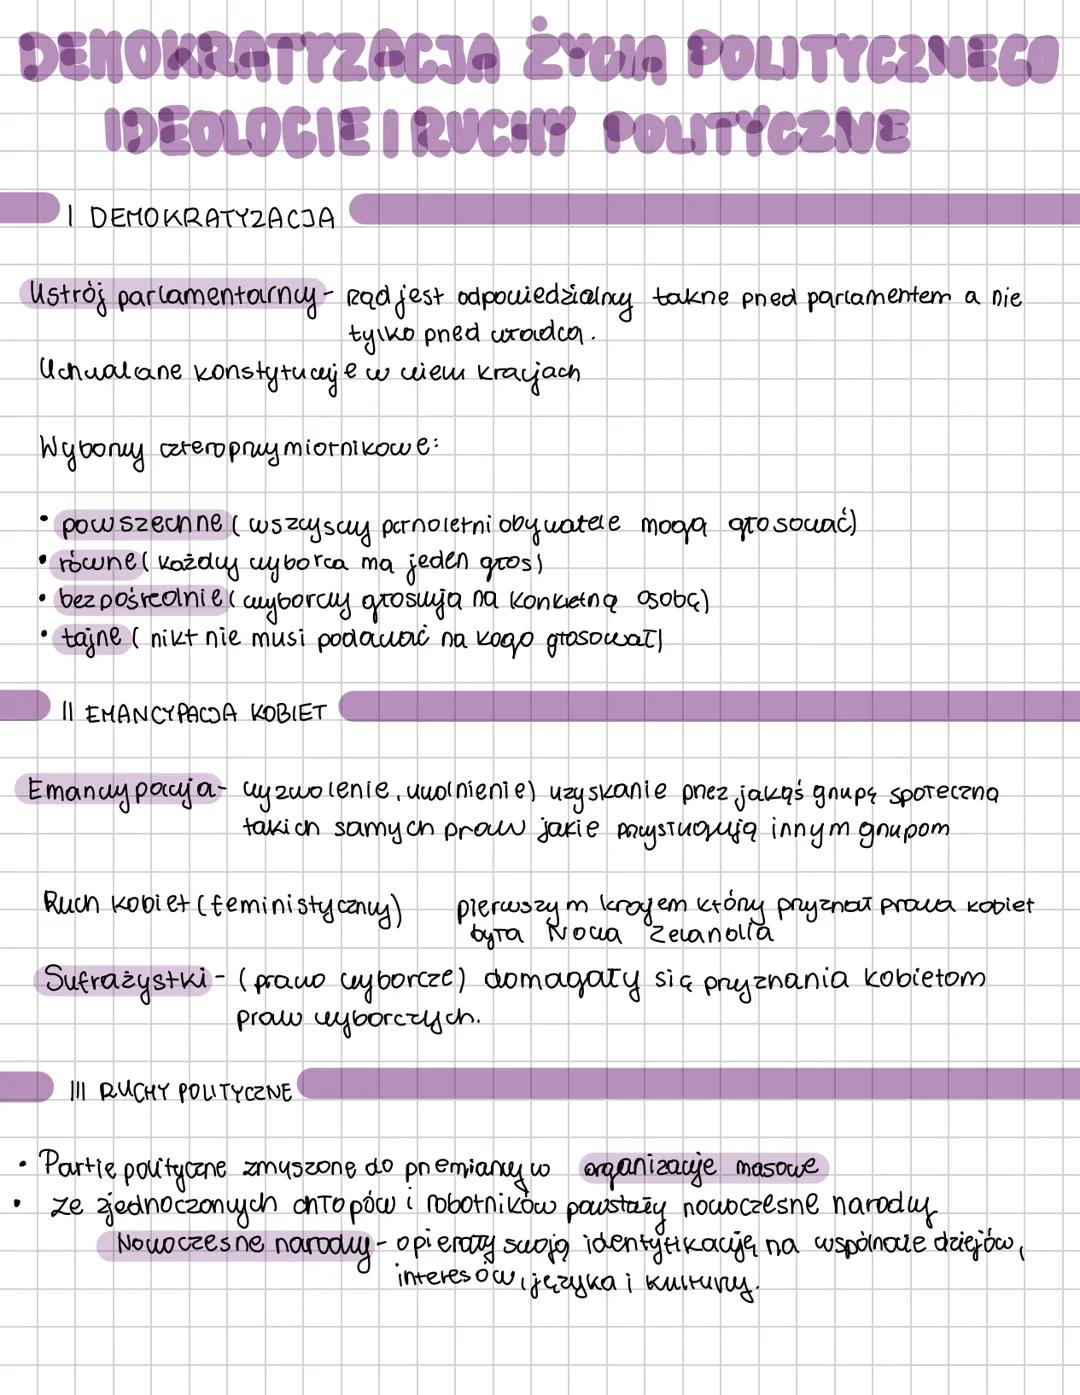 DEMOKRATYZACJA ŻYCIA POLITYCZNEGO
IDEOLOGIE I RUCHY POLITYCZNE
I DEMOKRATYZACJA
Ustrój parlamentarny - rząd jest odpowiedzialny także przed parlamentem a nie
tylko przed władcą.
Uchwalane konstytucje w wielu krajach
Wybory czteroprzymiotnikowe:
• powszechne ( wszyscy pełnoletni obywatele mogą głosować)
• równe ( każdy wyborca ma jeden głos)
• bezpośrednie ( wyborcy głosują na konkretną osobę)
• tajne ( nikt nie musi podawać na kogo głosował)
II EMANCYPACJA KOBIET
Emancypacja - wyzwolenie, uwolnienie) uzyskanie przez jakąś grupę społeczną
takich samych praw jakie przysługują innym grupom
Ruch kobiet (feministyczny) pierwszym krajem który przyznał prawa kobiet
była Nowa Zelandia
Sufrażystki - (prawo wyborcze) domagały się przyznania kobietom
praw wyborczych.
III RUCHY POLITYCZNE
• Partie polityczne zmuszone do przemiany w organizacje masowe
• ze zjednoczonych chłopów i robotników powstały nowoczesne narody
Nowoczesne narody - opierały swoją identyfikację na wspólnocie dziejów,
interesów, języka i kultury.